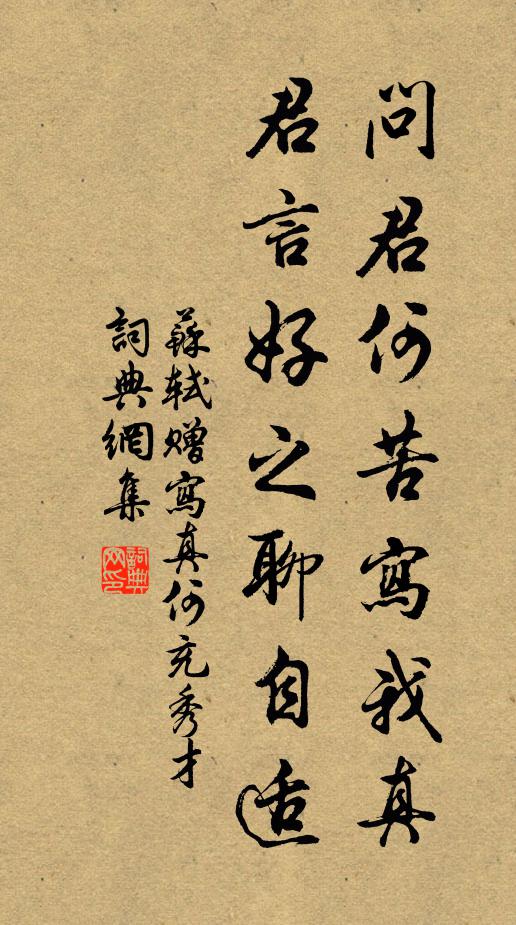 問君何苦寫我真
君言好之聊自适
蘇軾贈寫真何充秀才
詞典網集
詞典网印